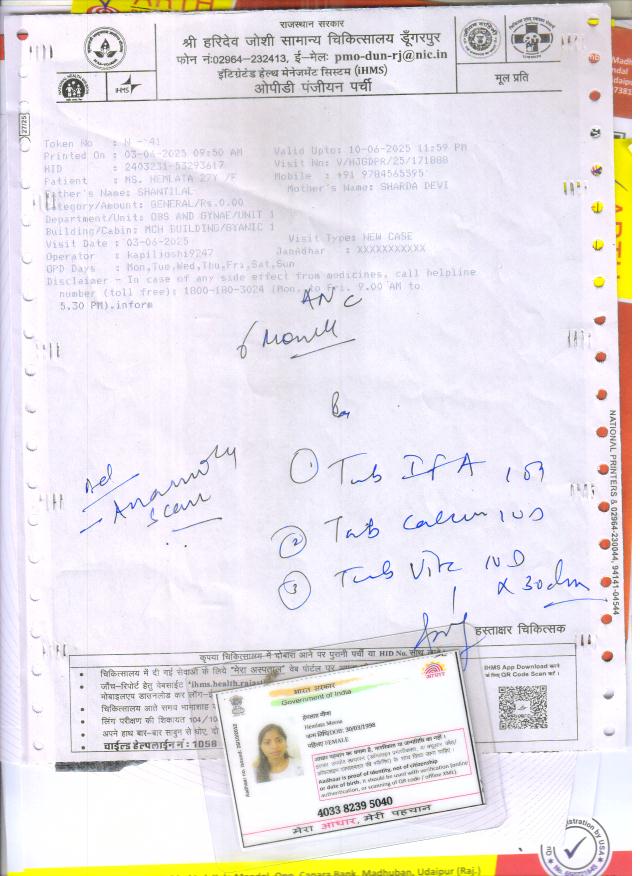 राजस्थान सरकार
श्री हरिदेव जोशी सामान्य चिकित्सालय डूँगरपुर
फोन नं:02964-232413, ई-मेल: pmo-dun-rj@nic.in
इंटिग्रेटेड हेल्थ मेनेजमेंट सिस्टम (iHMS)
ओपीडी पंजीयन पर्ची
मूल प्रति
Token No : N - 41
Printed On : 03-06-2025 09:50 AM Valid Upto: 10-06-2025 11:59 PM
HID : 2403231-53293617 Visit No: V/HJGDPR/25/171888
Patient : MS. HEMLATA 27Y /F Mobile : +91 9784565595
Father's Name: SHANTILAL Mother's Name: SHARDA DEVI
Category/Amount: GENERAL/Rs.0.00
Department/Unit: OBS AND GYNAE/UNIT 1
Building/Cabin: MCH BUILDING/GYANIC 1
Visit Date : 03-06-2025 Visit Type: NEW CASE
Operator : kapiljoshi9247 JanAdhar : XXXXXXXXXXX
OPD Days : Mon,Tue,Wed,Thu,Fri,Sat,Sun
Disclaimer - In case of any side effect from medicines, call helpline
number (toll free): 1800-180-3024 (Mon. to Fri. 9.00 AM to
5.30 PM).inform
ANC
6 Month
Ad
Anamoly
Scan
① Tab IFA 1 OD
② Tab Calcium 1 OD
③ Tab Vit c 1 OD
x 30 days
NATIONAL PRINTERS & 02964-230044, 94141-04544
हस्ताक्षर चिकित्सक
कृपया चिकित्सालय में दोबारा आने पर पुरानी पर्ची या HID No. साथ
चिकित्सालय में दी गई सेवाओं के लिये "मेरा अस्पताल" वेब पोर्टल पर
जाँच-रिपोर्ट हेतु वेबसाईट
मोबाइलएप डाउनलोड कर
चिकित्सालय आते समय भामाशाह
लिंग परीक्षण की शिकायत 104/10
अपने हाथ बार-बार साबुन से धोए,
चाईल्ड हेल्पलाईन नं : 1098
IHMS App Download करने
के लिए QR Code Scan करें।
भारत सरकार
Government of India
आधार
हेमलता मीणा
Hemlata Meena
जन्म तिथि/DOB: 30/03/1998
महिला/ FEMALE
आधार पहचान का प्रमाण है, नागरिकता या जन्मतिथि का नहीं।
Aadhaar is proof of identity, not of citizenship
or date of birth. It should be used with verification (online
authentication, or scanning of QR code / offline XML).
4033 8239 5040
मेरा आधार, मेरी पहचान
Canara Bank, Madhuban, Udaipur (Raj.)